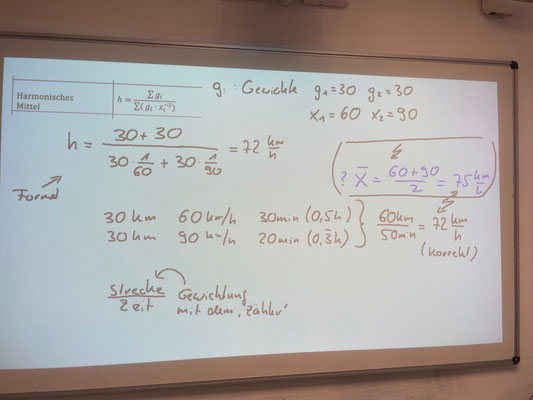 Harmonisches Mittel h = Σ gᵢ / Σ(gᵢ · xᵢ⁻¹)
gᵢ : Gewichte g₁=30 g₂=30
x₁=60 x₂=90
h = (30+30) / (30 · 1/60 + 30 · 1/90) = 72 km/h
? x̄ = (60+90)/2 = 75 km/h
Formel
30 km 60 km/h 30min (0,5h)
30 km 90 km/h 20min (0,3̄h)
60km/50min = 72 km/h
(korrekt)
Strecke/Zeit Gewichtung
mit dem „Zähler"